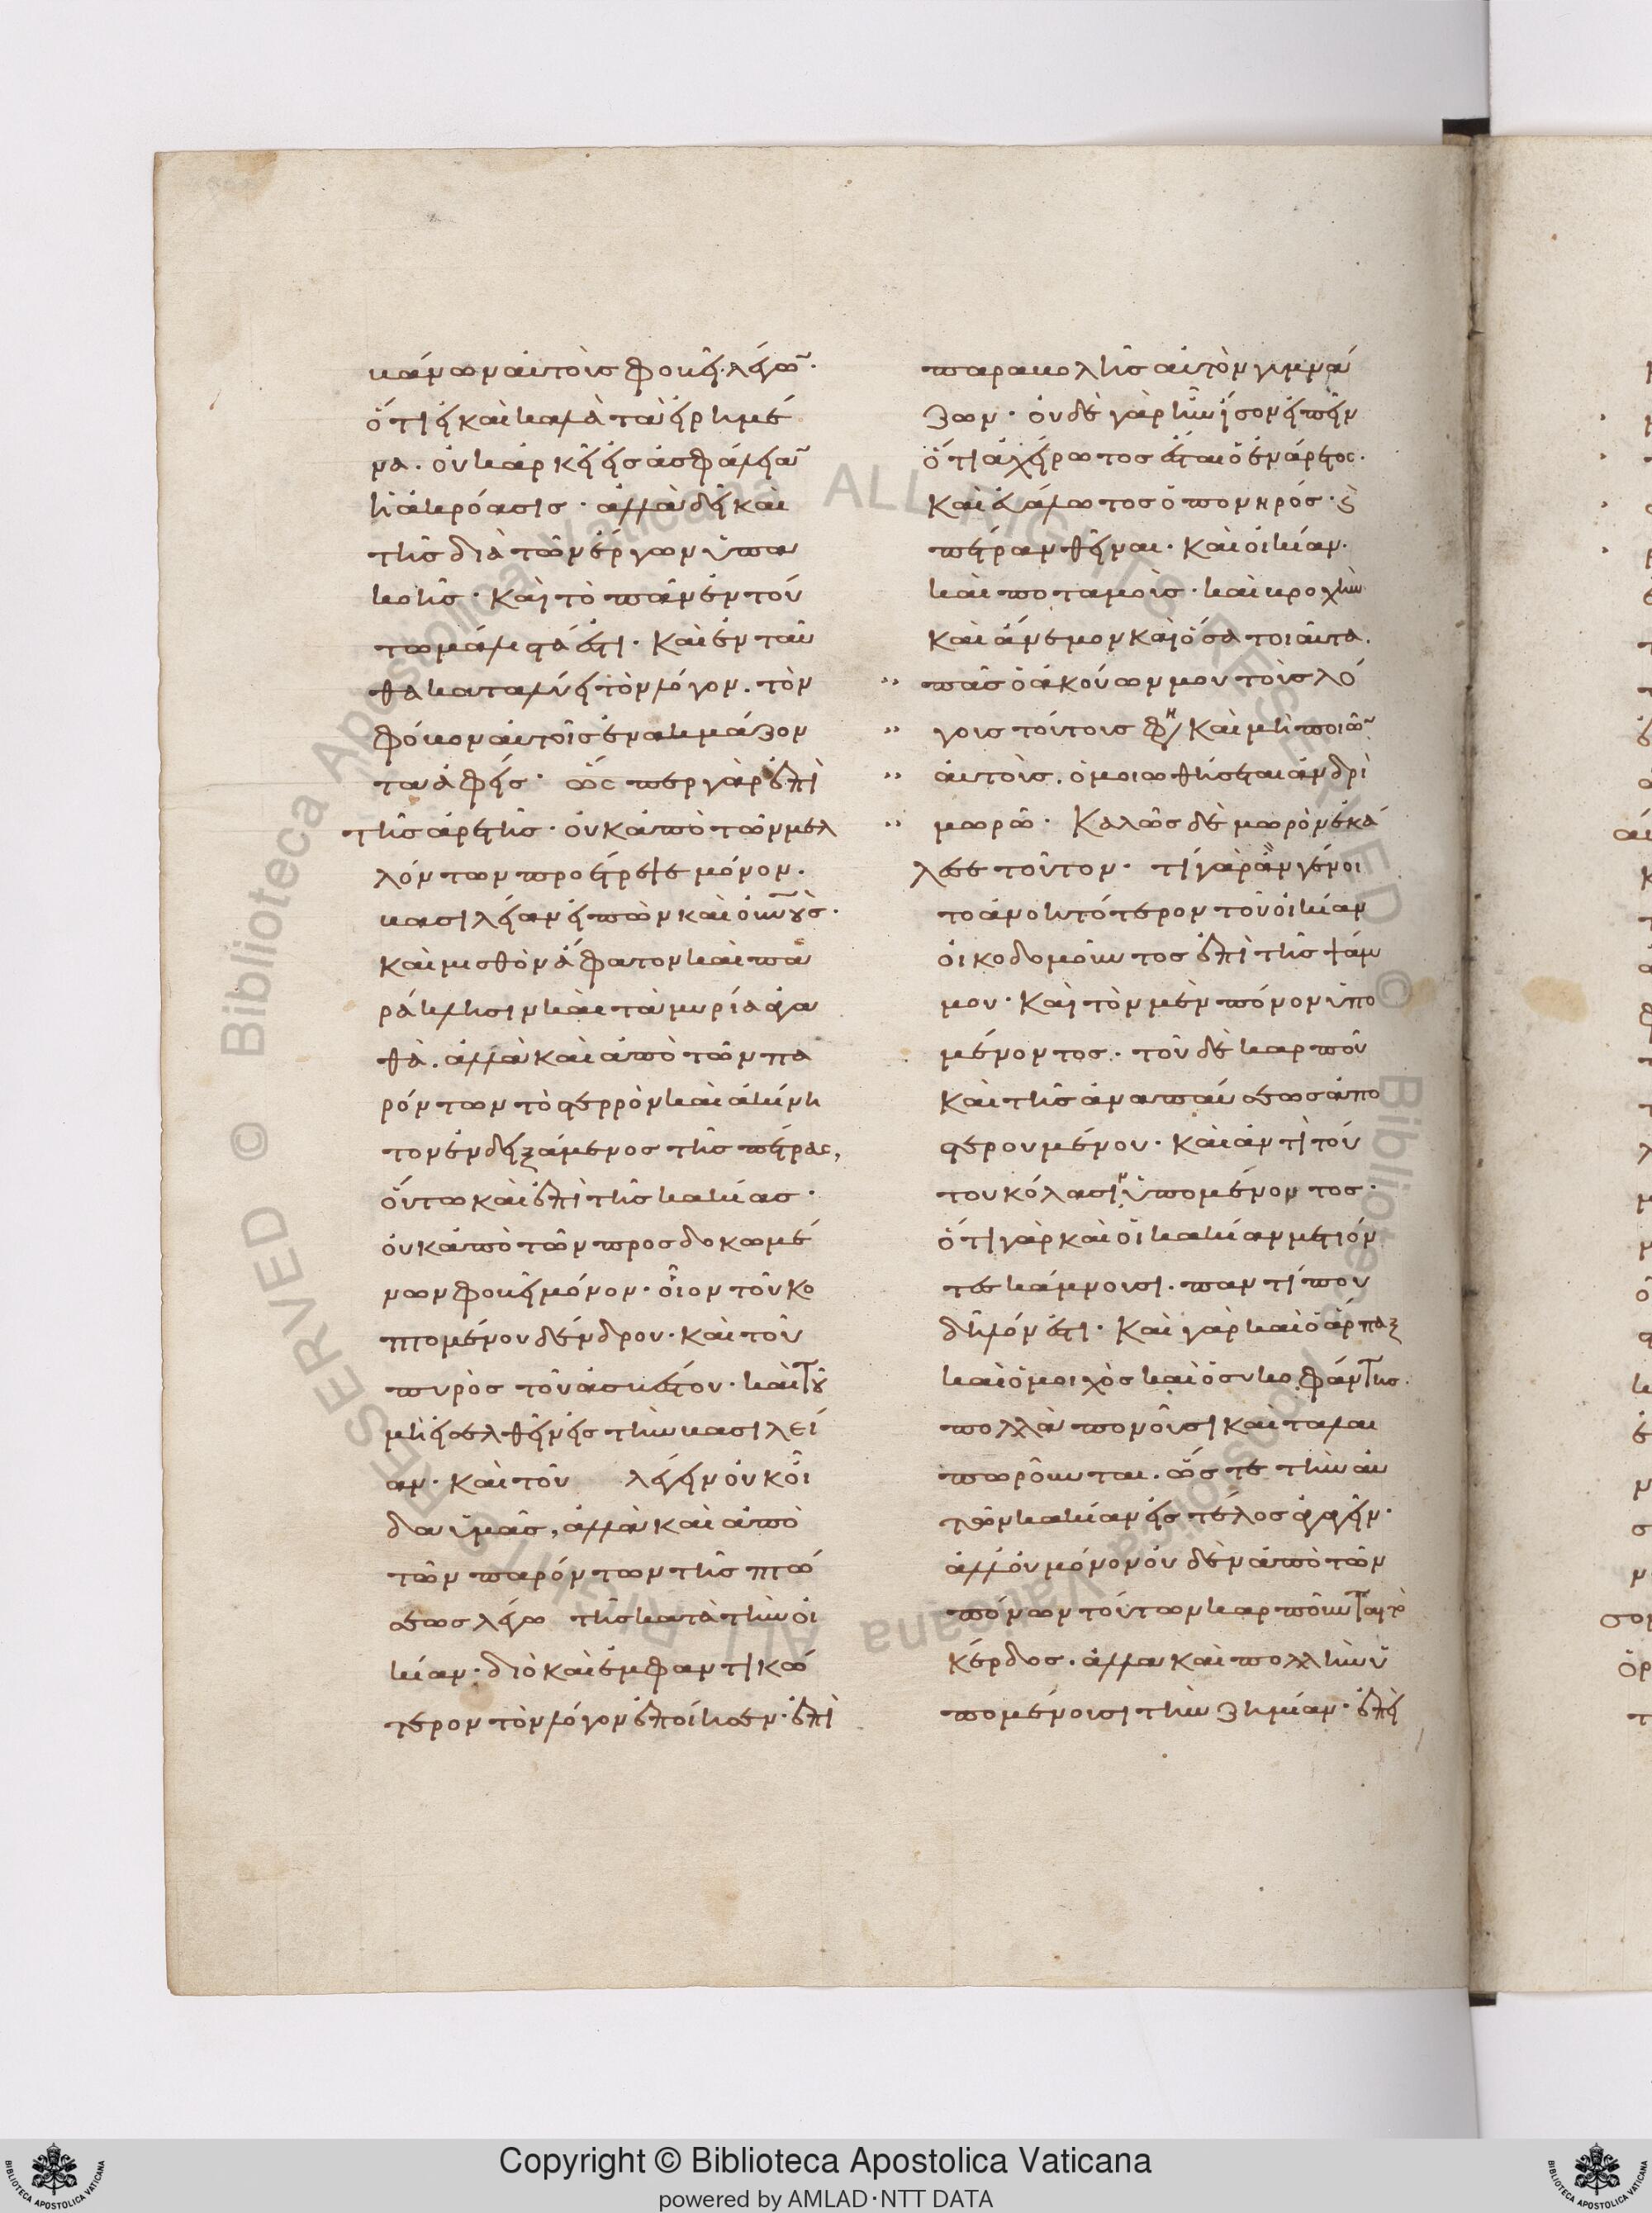 βάνων αὐτοῖς φοβεῖ· λέγω~·
ὅτι εἰ καὶ καλὰ τὰ εἰρημέ
να. οὐκ ἀρκεῖ εἰς ἀσφάλεια~
ἡ ἀκρόασις· ἀλλὰ δεῖ καὶ
τῆς διὰ τῶν ἔργων ὑπα
κοῆς· καὶ τὸ πᾶν ἐν τού
τω μάλιστά ἐστι. καὶ ἐνταῦ
θα καταλύει τὸν λόγον. τὸν
φόβον αὐτοῖς ἐνακμάζον
τα ἀφείς· ὥσπερ γὰρ ἐπὶ
τῆς ἀρετῆς· οὐκ ἀπὸ τῶν μελ
λόντων προέτρεψε μόνον.
βασιλείαν εἰπὼν καὶ οὐνοὺς·
καὶ μισθὸν ἄφατον καὶ πα
ράκλησιν καὶ τὰ μυρία ἀγα
θὰ. ἀλλὰ καὶ ἀπὸ τῶν πα
ρόντων τὸ στερρὸν καὶ ἀκίνη
τον ἐνδειξάμενος τῆς πέτρας,
οὕτω καὶ ἐπὶ τῆς κακίας·
οὐκ ἀπὸ τῶν προσδοκωμέ
νων φοβεῖ μόνον· οἷον τοῦ κο
πτομένου δένδρου· καὶ τοῦ
πυρὸς τοῦ ἀσβέστου· καὶ τοῦ
μὴ εἰσελθεῖν εἰς τὴν βασιλεί
αν· καὶ τοῦ λέγειν οὐκ οἶ
δα ὑμᾶς, ἀλλὰ καὶ ἀπὸ
τῶν παρόντων τῆς πτώ
σεως λέγω τῆς κατὰ τὴν οἰ
κίαν· διὸ καὶ ἐμφαντικώ
τερον τὸν λόγον ἐποίησεν· ἐπὶ
παραβολῆς αὐτὸν γυμνά
ζων· οὐδὲ γὰρ ἦν ἴσον εἰπεῖν
ὅτι ἀχείρωτος ἔσται ὁ ἐνάρετος.
καὶ εὐάλωτος ὁ πονηρός· ἢ
πέτραν θεῖναι· καὶ οἰκίαν·
καὶ ποταμοὺς· καὶ βροχὴν
καὶ ἄνεμον καὶ ὅσα τοιαῦτα.
πᾶς ὁ ἀκούων μου τοὺς λό
γους τούτους φη καὶ μὴ ποιῶ~
αὐτοὺς. ὁμοιωθήσεται ἀνδρὶ
μωρῶ· Καλῶς δὲ μωρὸν ἐκά
λεσε τοῦτον· τί γὰρ ἂν γένοι
το ἀνοητότερον τοῦ οἰκίαν
οἰκοδομοῦντος ἐπὶ τῆς ψάμ
μου· καὶ τὸν μὲν πόνον ὑπο
μένοντος. τοῦ δὲ καρποῦ
καὶ τῆς ἀναπαύσεως ἀπο
στερουμένου· καὶ ἀντὶ τού
του κόλασιν ὑπομένοντος·
ὅτι γὰρ καὶ οἱ κακίαν μετιόν
τες κάμνουσι. παντί που
δῆλόν ἐστι· καὶ γὰρ καὶ ὁ ἅρπαξ
καὶ ὁ μοιχὸς καὶ ὁ συκοφάντης.
πολλὰ πονοῦσι καὶ ταλαι
πωροῦνται. ὥστε τὴν αὐ
τῶν κακίαν εἰς τέλος ἀγαγεῖν·
ἀλλ' οὐ μόνον οὐδὲν ἀπὸ τῶν
πόνων τούτων καρποῦνται τὸ
κέρδος. ἀλλὰ καὶ πολλὴν ὑ
πομένουσι τὴν ζημίαν· ἐπεὶ